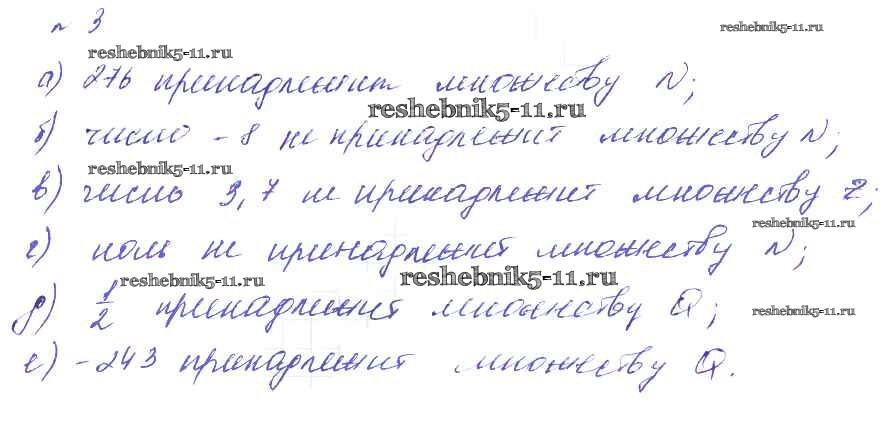 № 3
reshebnik5-11.ru
reshebnik5-11.ru
а) 276 принадлежит множеству N;
reshebnik5-11.ru
б) число -8 не принадлежит множеству N;
reshebnik5-11.ru
в) число 3,7 не принадлежит множеству Z;
reshebnik5-11.ru
г) ноль не принадлежит множеству N;
reshebnik5-11.ru
reshebnik5-11.ru
д) 1/2 принадлежит множеству Q;
reshebnik5-11.ru
е) -243 принадлежит множеству Q.